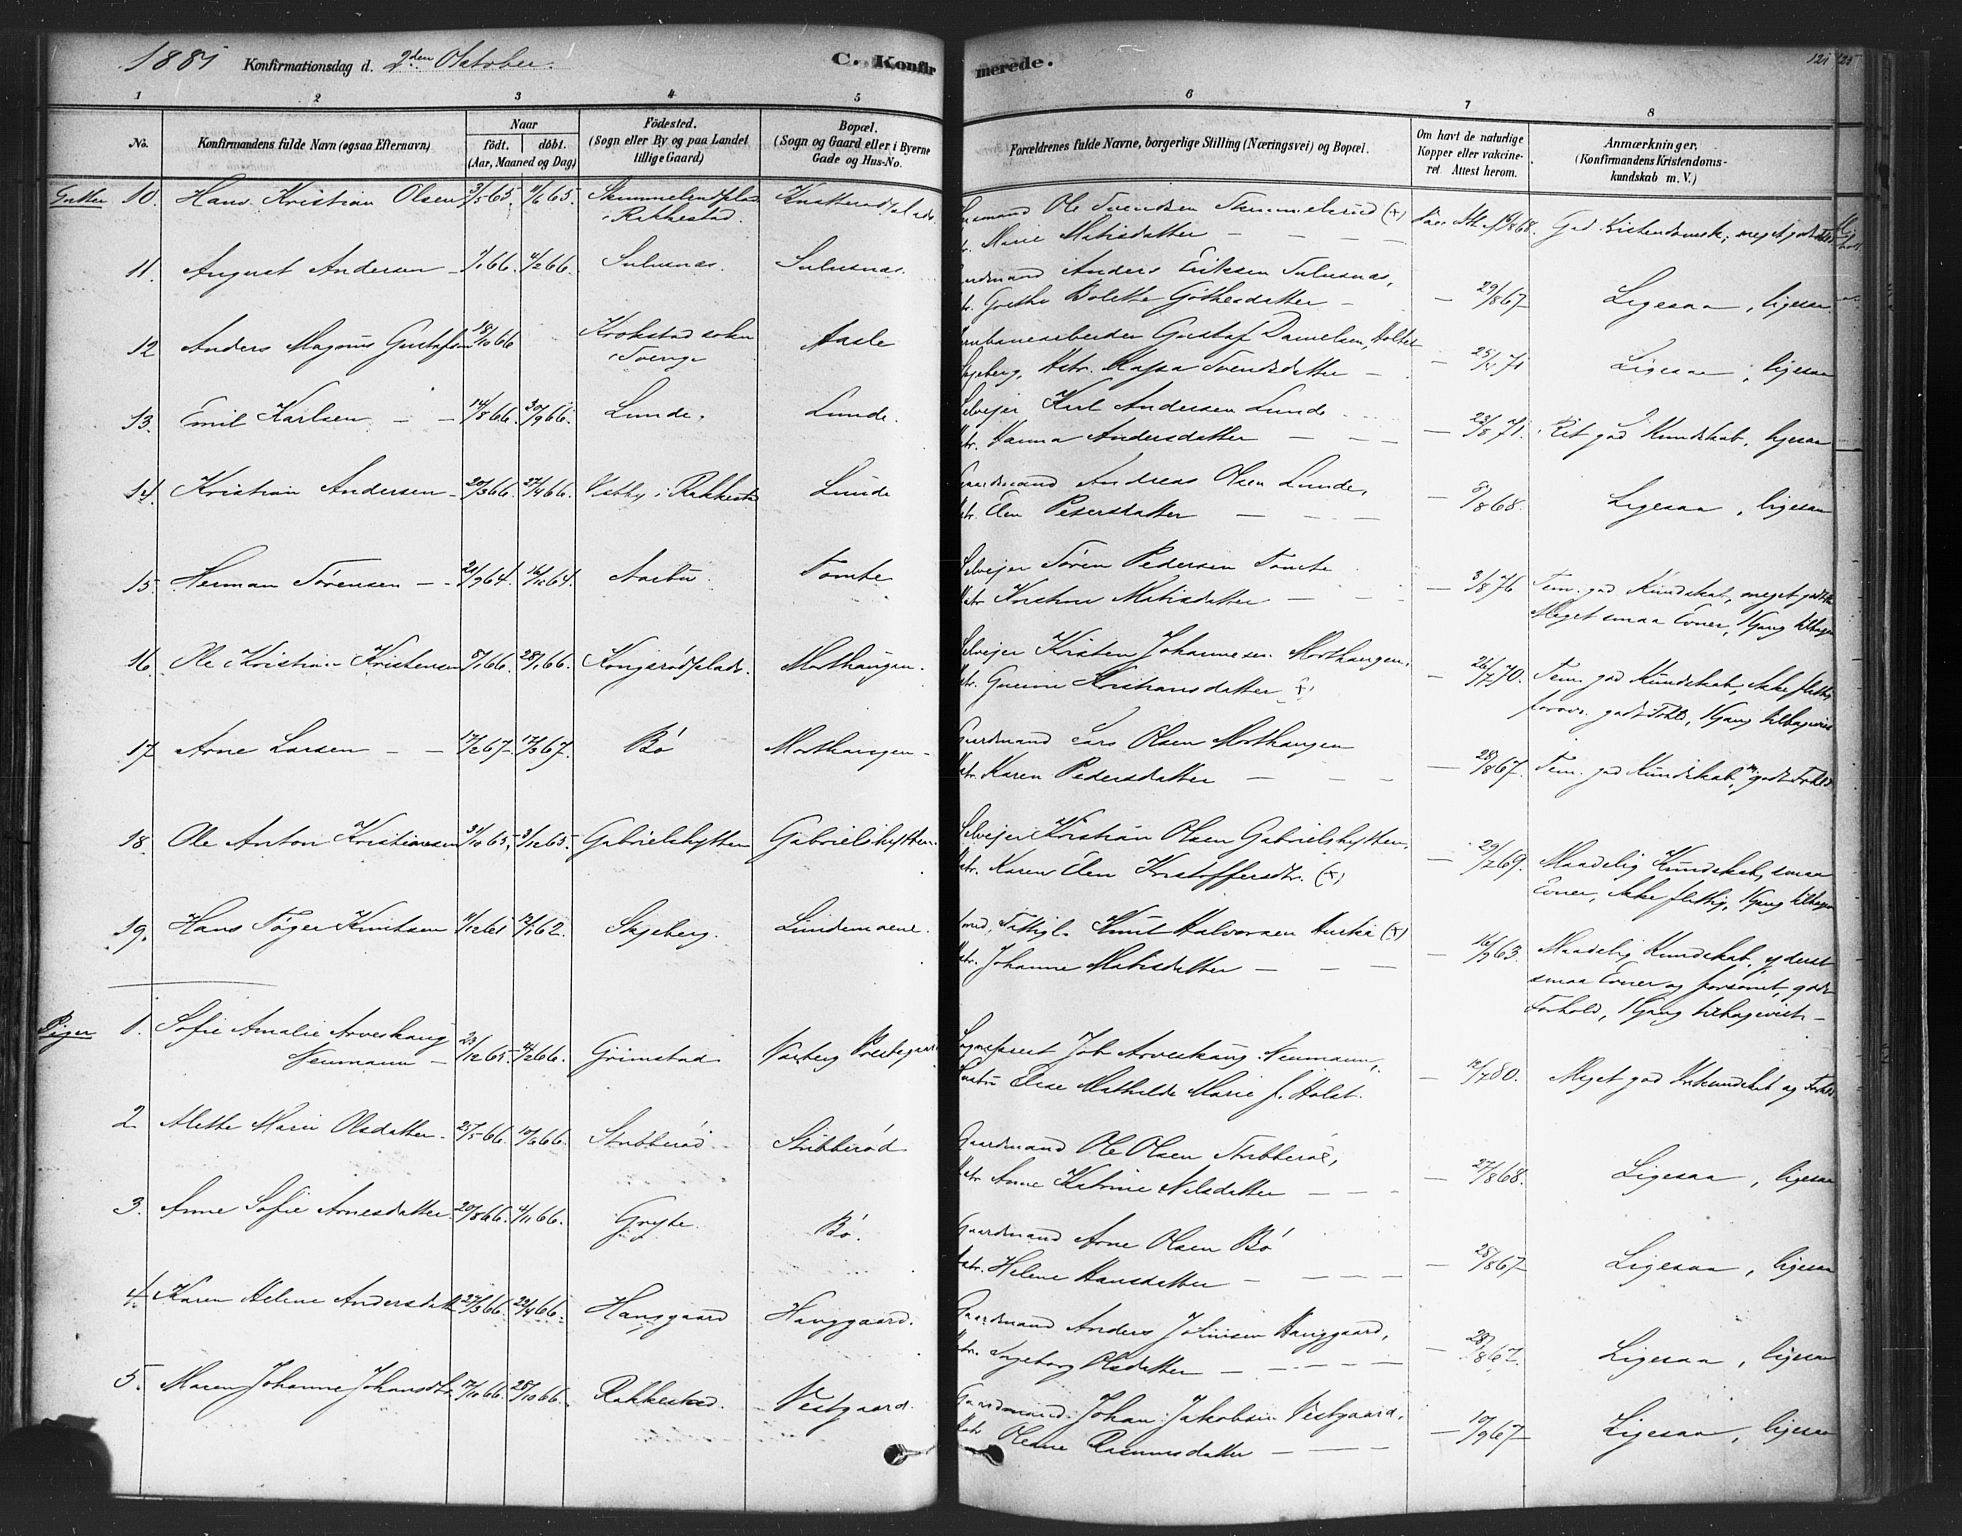 1881 Konfirmationsdag d. 2den Oktober.
C. Konfirmerede.
121
1 2 3 4 5 6 7 8
No.
Konfirmandens fulde Navn (ogsaa Efternavn)
Naar
født. døbt.
(Aar, Maaned og Dag)
Födested.
(Sogn eller By og paa Landet
tillige Gaard)
Bopæl.
(Sogn og Gaard eller i Byerne
Gade og Hus-No.
Forældrenes fulde Navne, borgerlige Stilling (Næringsvei) og Bopæl.
Om havt de naturlige
Kopper eller vakcine-
ret. Attest herom.
Anmærkninger,
(Konfirmandens Kristendoms-
kundskab m. V.)
Gutter 10. Hans Kristian Olsen 3/5 65 4/6 65
i Rakkestad.
Husmand Ole Svendsen (x)
Marie Matisdatter
God Kristendomsk., meget godt
11. August Andersen 4/2 66. Sulusnas. Sulusnas.
Gaardmand Anders Eriksen Sulusnas,
Grethe Bolette — 29/8 67 Ligesaa, ligesaa
12 Anders Magnus Gustafsen 18/10 66 Krokstad sokn
i Sverige Aasle
Jernbanearbeider Gustaf Danielsen, Holter
Skjeberg, Hstr. Kajsa Svendsdatter — 71 Ligesaa, ligesaa
13. Emil Karlsen. 14/8 66. 30/9 66. Lunde. Lunde.
Selvejer Karl Andersen Lunde
Hstr. Hanna Andersdatter — 23/8 71. Ret god Kundskab, ligesaa
14. Kristian Andersen 20/3 66. 27/4 66. Østby i Rakkestad Lunde
Gaardmand Andreas Olsen Lunde,
Hstr. Elen Petersdatter — 8/8 68. Ligesaa, ligesaa
15. Herman Sørensen 21/9 64. 16/10 64. Tomte
Selvejer Søren Pedersen Tomte
Hstr Kristine Matisdatter — 3/8 76 Tem. god Kundskab, meget godt
Meget smaa Evner, 1 Gang tilbagev
16. Ole Kristian Kristensen 8/1 66. 28/1 66. Kongsrødplads. Morthaugen.
Selvejer Kristen Johannesen Morthaugen,
Hstr. Gunine Kristiansdatter (x) — 26/7 70. Tem. god Kundskab, ikke flittig
forøvr. godt Forh., 1 Gang tilbagevist
17. Arne Larsen 17/2 67. 17/3 67. Bø Morthaugen
Gaardmand Lars Olsen Morthaugen
Hstr. Karen Pedersdatter — 28/8 67. Tem. god Kundskab, godt Forhold
18. Ole Anton Kristiansen 31/10 65, 3/12 65. Gabrielshytten Gabrielshytten.
Selvejer Kristian Olsen Gabrielshytten,
Hstr. Karen Elen Kristoffersdtr. (x) — 29/7 69. Maadelig Kundskab, smaa
Evner, ikke flittig, 1 Gang tilbagev
19. Hans Tøger Knutsen 11/12 61 12/1 62. Skjeberg. Lundemoene.
Knut Halvorsen (x)
Hstr. Johanne Matisdatter — 16/9 63. Maadelig Kundskab, yderst
smaa Evner og forsømt, godt
Forhold, 1 Gang tilbagevist —
Piger 1. Sofie Amalie Arveskaug
Neumann 23/12 65. 4/2 66. Grimstad Varteig Prestegaard
Sogneprest Joh. Arveskaug Neumann,
Hustru Elise Mathilde Marie f. Holst. — 12/7 80. Meget god Kr.kundskab og Forhold
2. Alette Marie Olsdatter. 25/5 66. 10/6 66. Stribberød Stribberød
Gaardmand Ole Olsen Stribberød,
Hstr Anne Katrine Nilsdatter — 27/8 68. Ligesaa, ligesaa
3. Anne Sofie Arnesdatter. 20/8 66. 4/11 66. Gryte. Bø.
Gaardmand Arne Olsen Bø
Hstr. Helene Hansdatter — 28/8 67 Ligesaa, ligesaa
4. Karen Helene Andersdatt 27/3 66. 22/4 66. Hansgaard Hansgaard.
Gaardmand Anders Johnsen Hansgaard,
Hstr. Ingeborg Olsdatter — 28/8 67. Ligesaa, ligesaa
5. Maren Johanne Johansdtr. 7/10 66. 28/10 66. Rakkestad. Vestgaard.
Gaardmand Johan Jakobsen Vestgaard,
Hstr. Olene Rasmusdatter — 10/9 67 Ligesaa, ligesaa